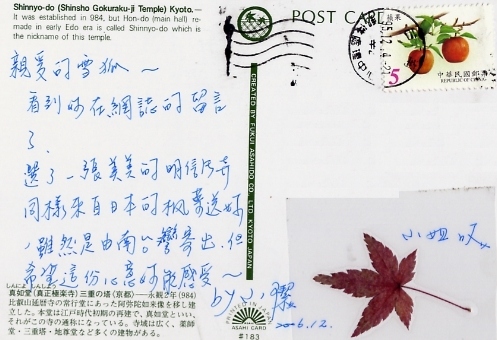 Shinnyo-do (Shinsho Gokuraku-ji Temple) Kyoto.—
It was established in 984, but Hon-do (main hall) re-
made in early Edo era is called Shinnyo-do which is
the nickname of this temple.
POST CARD
蘋果
5
中華民國郵票
REPUBLIC OF CHINA
親愛的雪狐～
看到妳在網誌的留言
了.
選了一張美美的明信片寄
同樣來自日本的楓葉送妳
雖然是由南台灣寄出,但
希望這份心意妳能感受～
by 小
2006.12.
小姐收
CREATED BY FUKUI ASAHIDO CO. LTD KYOTO JAPAN
しんにょどう
真如堂(真正極楽寺)三重の塔(京都)——永観2年(984)
比叡山延暦寺の常行堂にあった阿弥陀如来像を移し建
立した。本堂は江戸時代初期の再建で、真如堂といい、
それがこの寺の通称になっている。寺域は広く、薬師
堂・三重塔・地尊堂など多くの建物がある。
PRINTED IN JAPAN
ASAHI CARD
#183